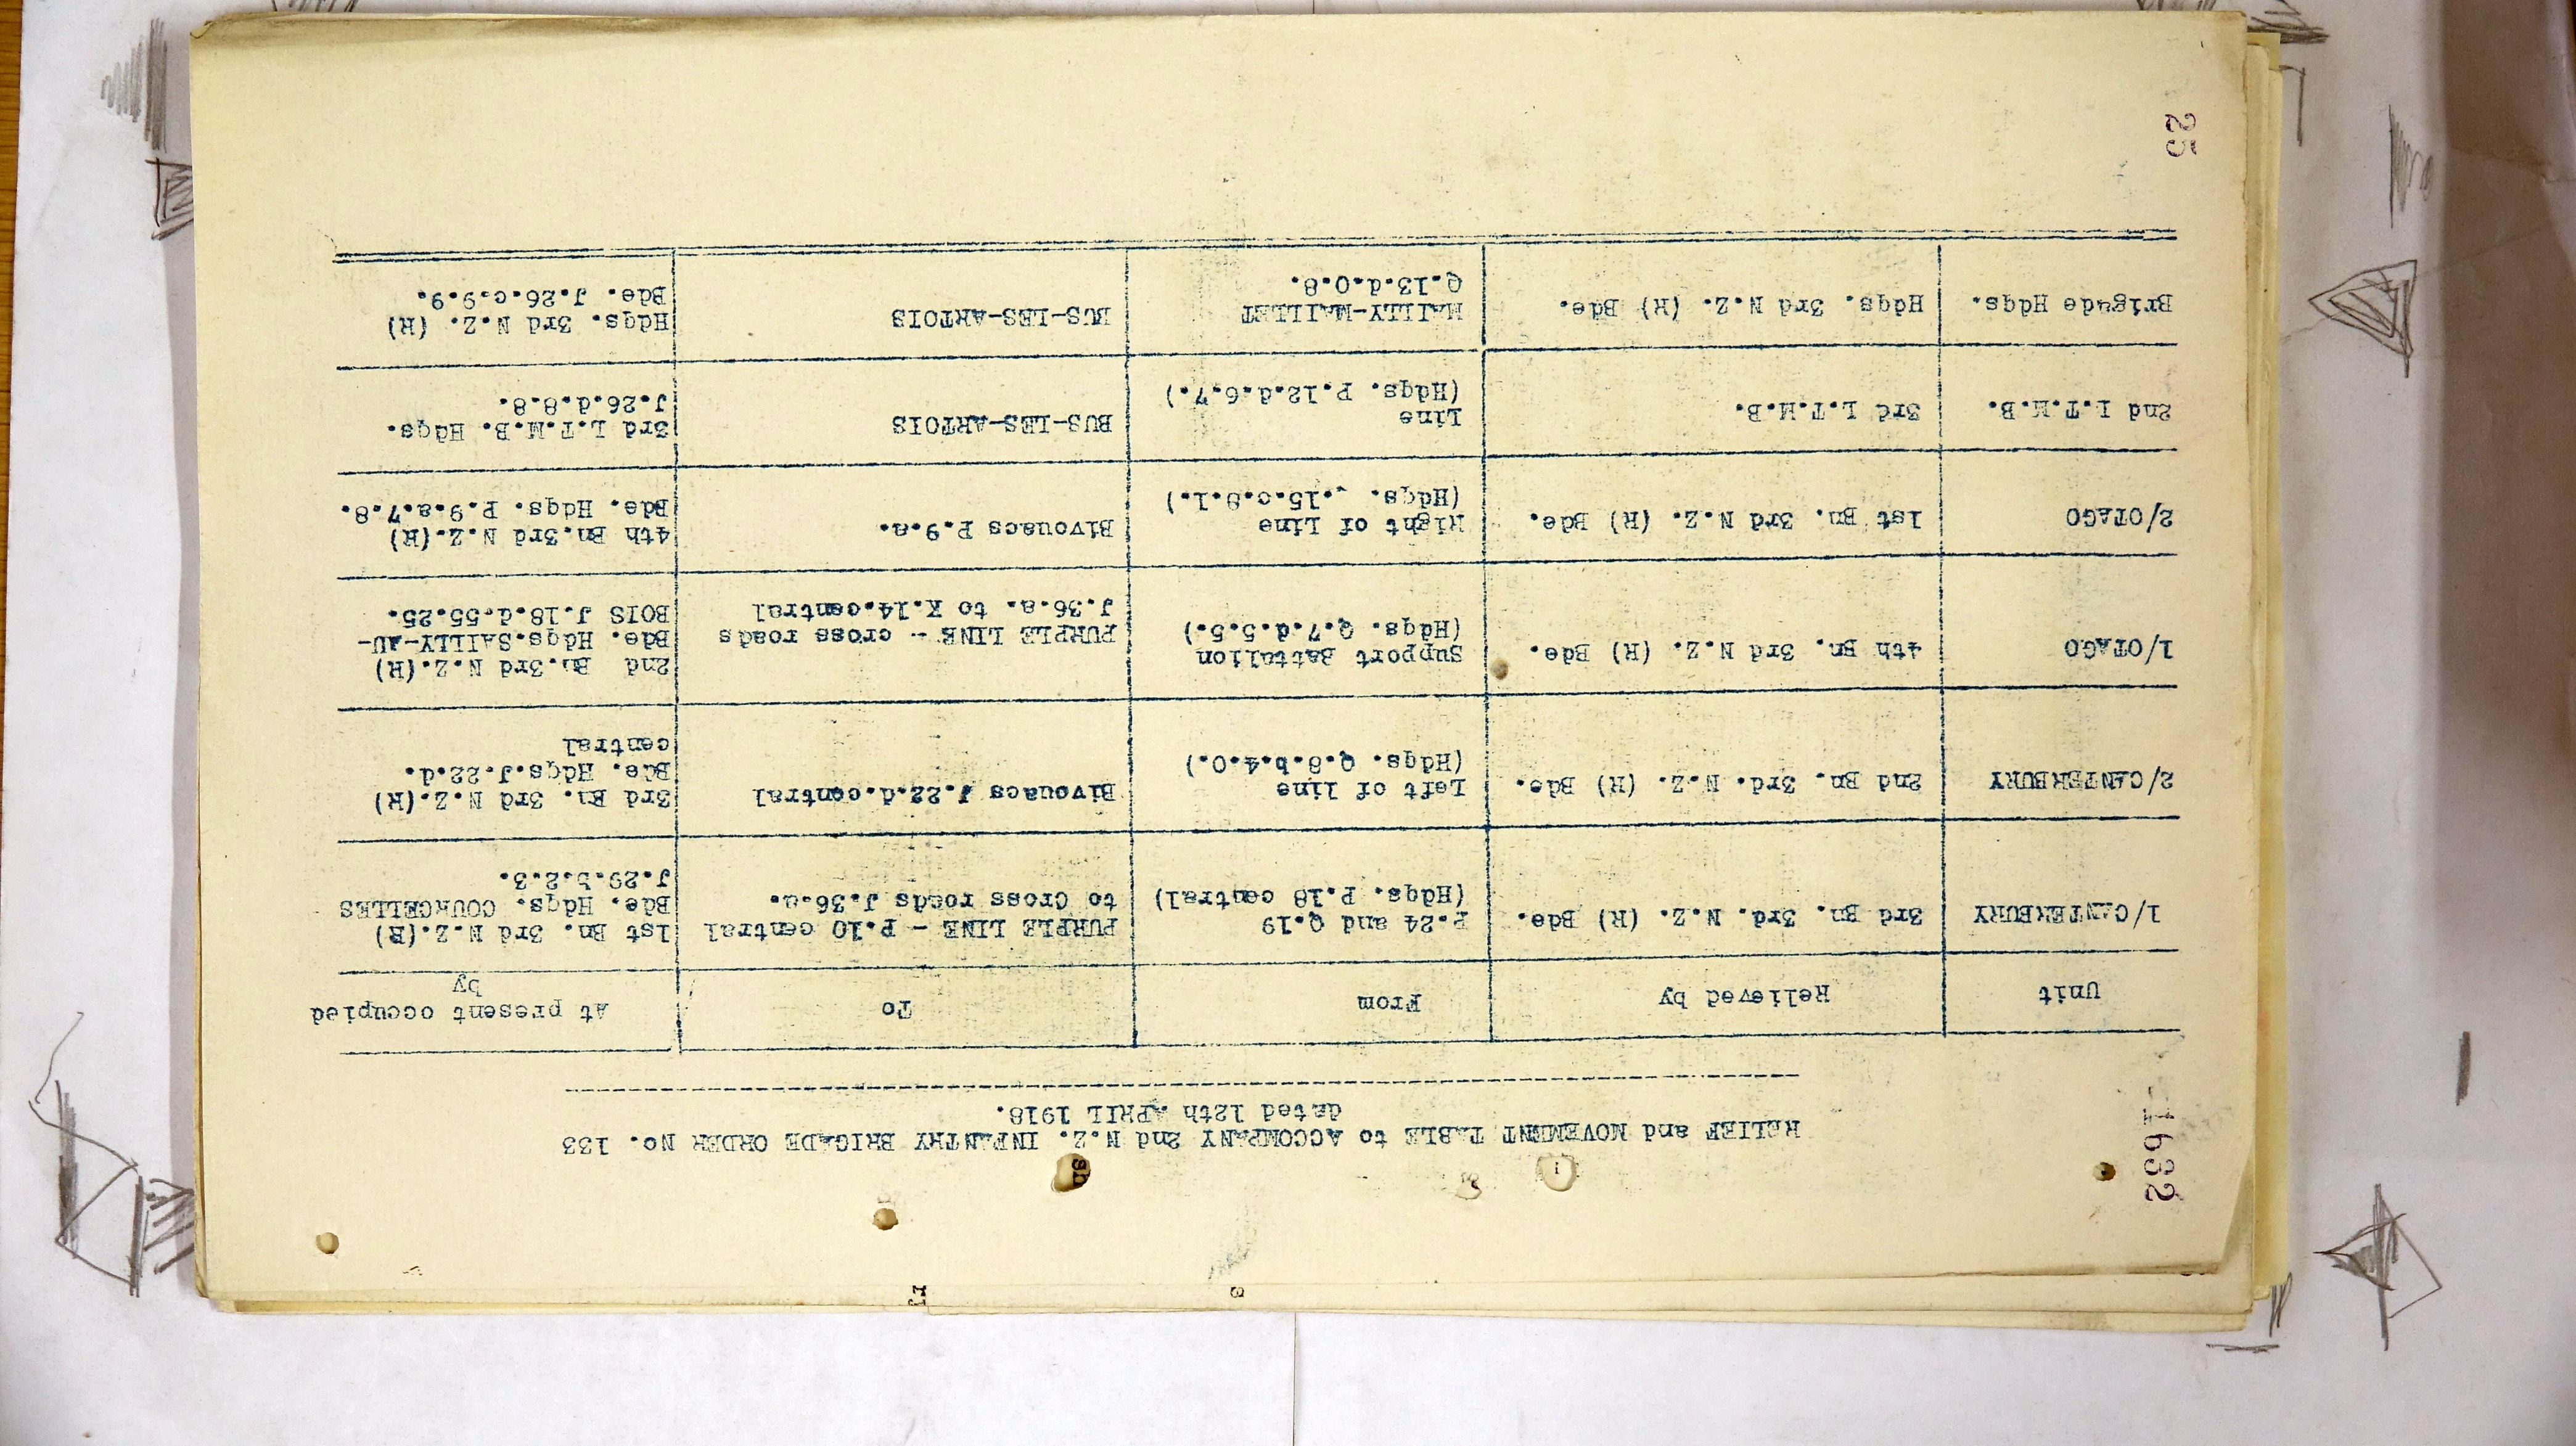 RELIEF and MOVEMENT TABLE to ACCOMPANY 2nd N.Z. INFANTRY BRIGADE ORDER No. 133
dated 12th APRIL 1918.
Unit
Relieved by
From
To
At present occupied
by
1/CANTERBURY
3rd Bn. 3rd. N.Z. (R) Bde.
P.24 and Q.19
(Hdqs. P.18 central)
PURPLE LINE - P.10 central
to Cross roads J.36.a.
1st Bn. 3rd N.Z.(R)
Bde. Hdqs. COURCELLES
J.29.b.2.3.
2/CANTERBURY
2nd Bn. 3rd. N.Z. (R) Bde.
Left of line
(Hdqs. Q.8.b.4.0.)
Bivouacs J.22.d.central
3rd Bn. 3rd N.Z.(R)
Bde. Hdqs.J.22.d.
central
1/OTAGO
4th Bn. 3rd N.Z. (R) Bde.
Support Battalion
(Hdqs. Q.7.d.5.5.)
PURPLE LINE - cross roads
J.36.a. to K.14.central
2nd Bn.3rd N.Z.(R)
Bde. Hdqs.SAILLY-AU-
BOIS J.18.d.55.25.
2/OTAGO
1st Bn. 3rd N.Z. (R) Bde.
Right of Line
(Hdqs. .15.c.8.1.)
Bivouacs P.9.a.
4th Bn.3rd N.Z.(R)
Bde. Hdqs. P.9.a.7.8.
2nd L.T.M.B.
3rd L.T.M.B.
Line
(Hdqs. P.12.d.6.7.)
BUS-LES-ARTOIS
3rd L.T.M.B. Hdqs.
J.26.d.8.8.
Brigade Hdqs.
Hdqs. 3rd N.Z. (R) Bde.
MAILLY-MAILLET
Q.13.d.0.8.
BUS-LES-ARTOIS
Hdqs. 3rd N.Z. (R)
Bde. J.26.c.9.9.
1632
25